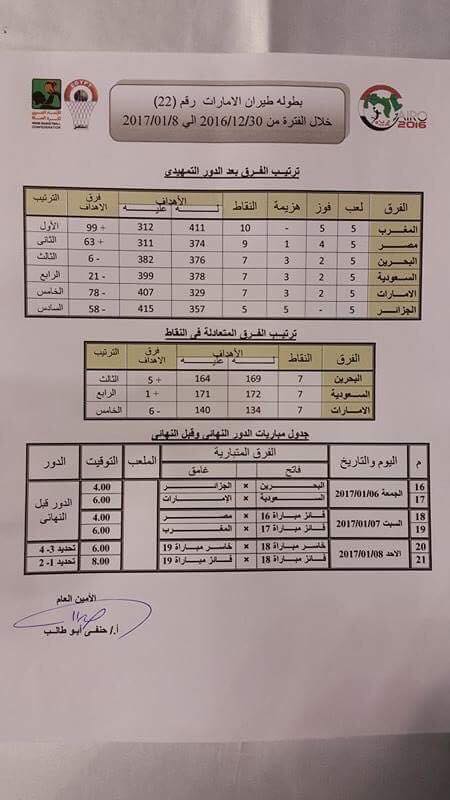 بطوله طيران الامارات رقم (22)
خلال الفترة من 2016/12/30 الي 2017/01/8
EGYPT
ARAB BASKETBALL
CONFEDERATION
CAIRO
2016
ترتيب الفرق بعد الدور التمهيدى
الفرق لعب فوز هزيمة النقاط الأهداف فرق الاهداف الترتيب
له عليه
المغرب 5 5 - 10 411 312 + 99 الأول
مصر 5 4 1 9 374 311 + 63 الثانى
البحرين 5 2 3 7 376 382 - 6 الثالث
السعودية 5 2 3 7 378 399 - 21 الرابع
الامارات 5 2 3 7 329 407 - 78 الخامس
الجزائر 5 - 5 5 357 415 - 58 السادس
ترتيب الفرق المتعادلة فى النقاط
الفرق النقاط الأهداف فرق الاهداف الترتيب
له عليه
البحرين 7 169 164 + 5 الثالث
السعودية 7 172 171 + 1 الرابع
الامارات 7 134 140 - 6 الخامس
جدول مباريات الدور النهائى وقبل النهائى
م اليوم والتاريخ الفرق المتبارية الملعب التوقيت الدور
فاتح غامق
16 الجمعة 2017/01/06 البحرين × الجزائر 4.00 الدور قبل النهائى
17 السعودية × الإمارات 6.00
18 السبت 2017/01/07 فائز مباراة 16 × مصر 4.00
19 فائز مباراة 17 × المغرب 6.00
20 الاحد 2017/01/08 خاسر مباراة 18 × خاسر مباراة 19 6.00 تحديد 3- 4
21 فائز مباراة 18 × فائز مباراة 19 8.00 تحديد 1- 2
الأمين العام
أ./ حنفى أبو طالب